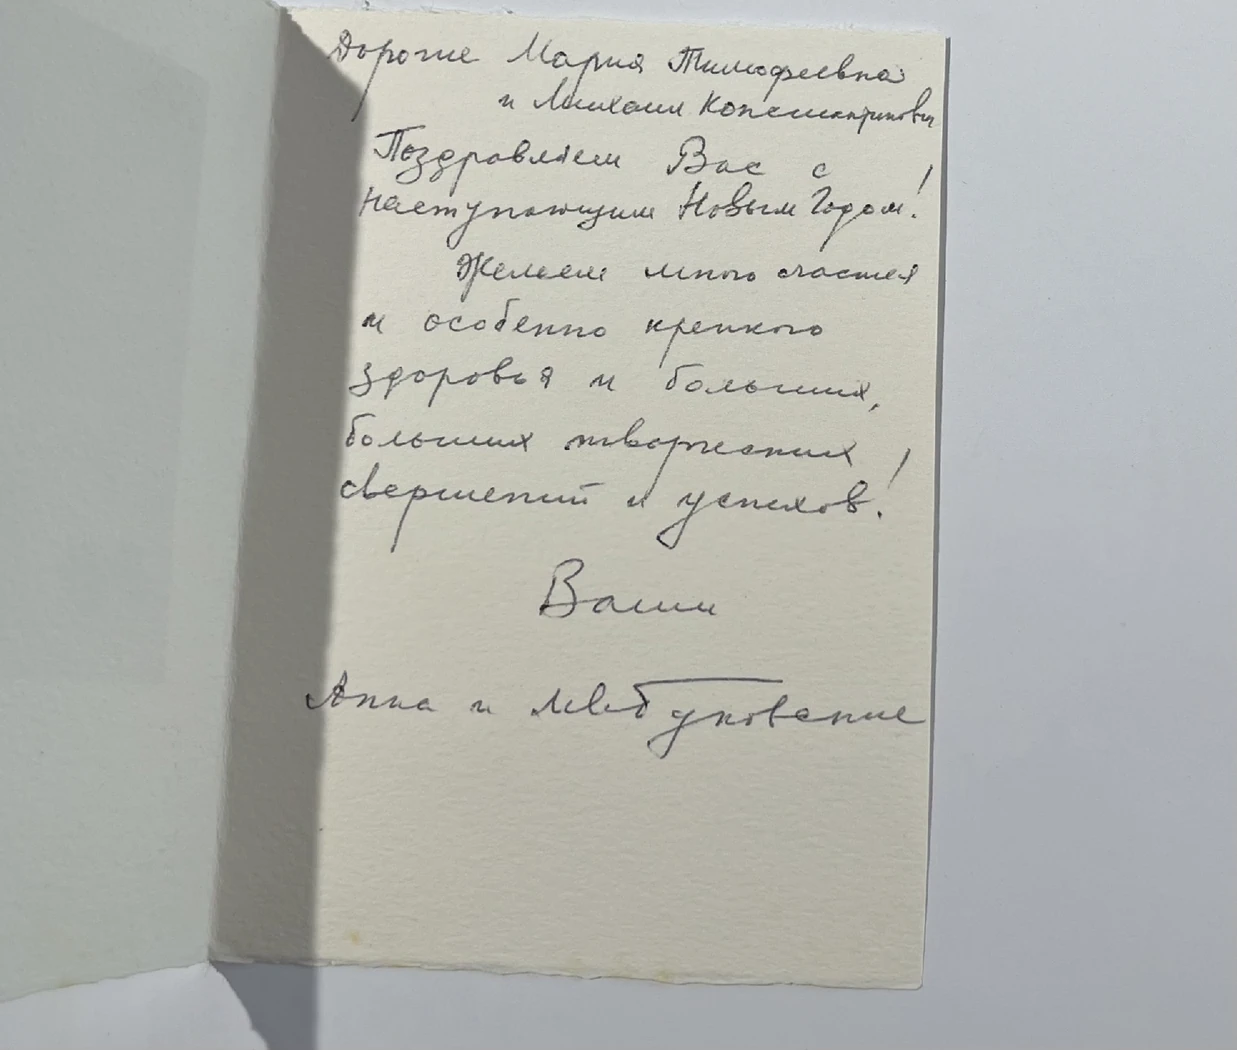 Дорогие Мария Тимофеевна
и Михаил Константинович
Поздравляем Вас с
наступающим Новым Годом!
Желаем много счастья
и особенно крепкого
здоровья и больших,
больших творческих
свершений и успехов!
Ваши
Анна и